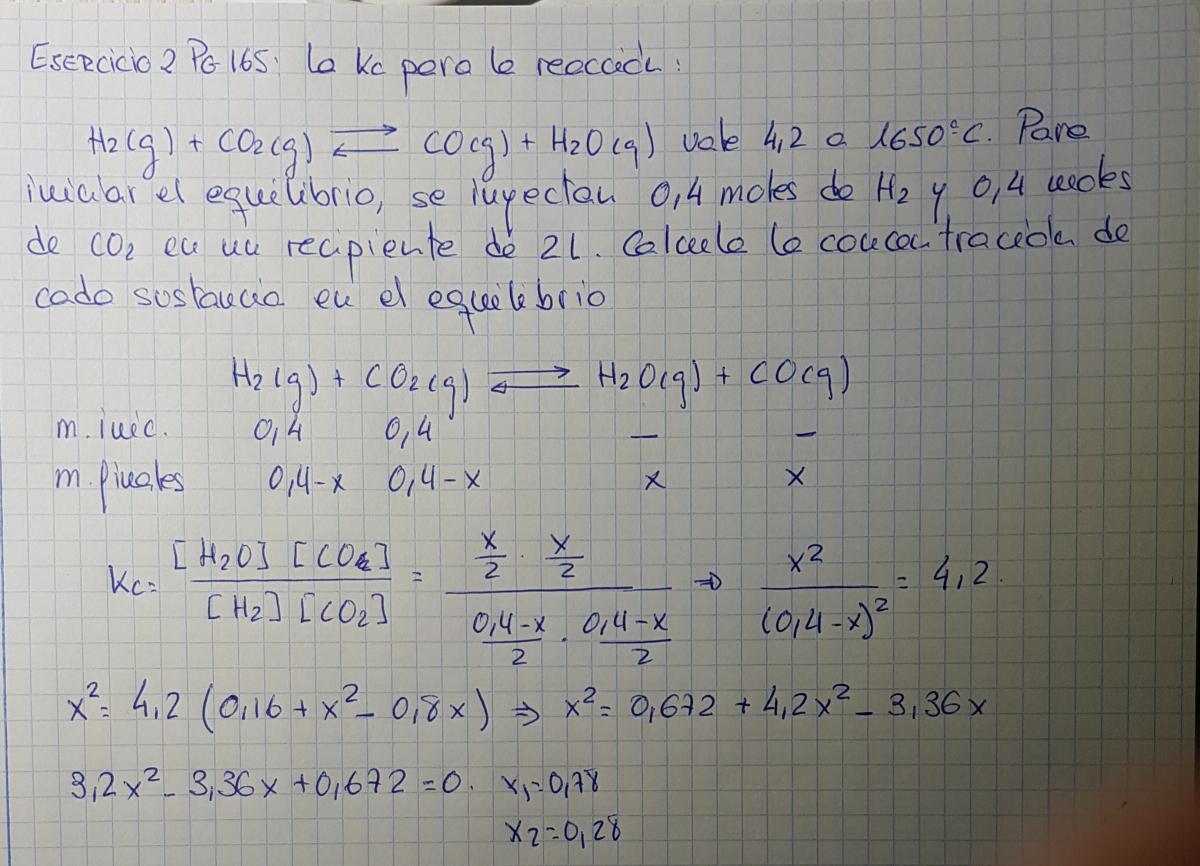 ESERCICIO 2 PG 165: La Kc para la reacción:
H2(g) + CO2(g) ⇌ CO(g) + H2O(g) vale 4,2 a 1650°C. Para
iniciar el equilibrio, se inyectan 0,4 moles de H2 y 0,4 moles
de CO2 en un recipiente de 2L. Calcula la concentración de
cada sustancia en el equilibrio
H2(g) + CO2(g) ⇌ H2O(g) + CO(g)
m. inic. 0,4 0,4 – –
m. finales 0,4-x 0,4-x x x
Kc = [H2O] [CO] / [H2] [CO2] = x/2 · x/2 / 0,4-x/2 · 0,4-x/2 ⇒ x² / (0,4-x)² = 4,2.
x² = 4,2 (0,16 + x² - 0,8x) ⇒ x² = 0,672 + 4,2x² - 3,36x
3,2x² - 3,36x + 0,672 = 0. x1 = 0,78
x2 = 0,28